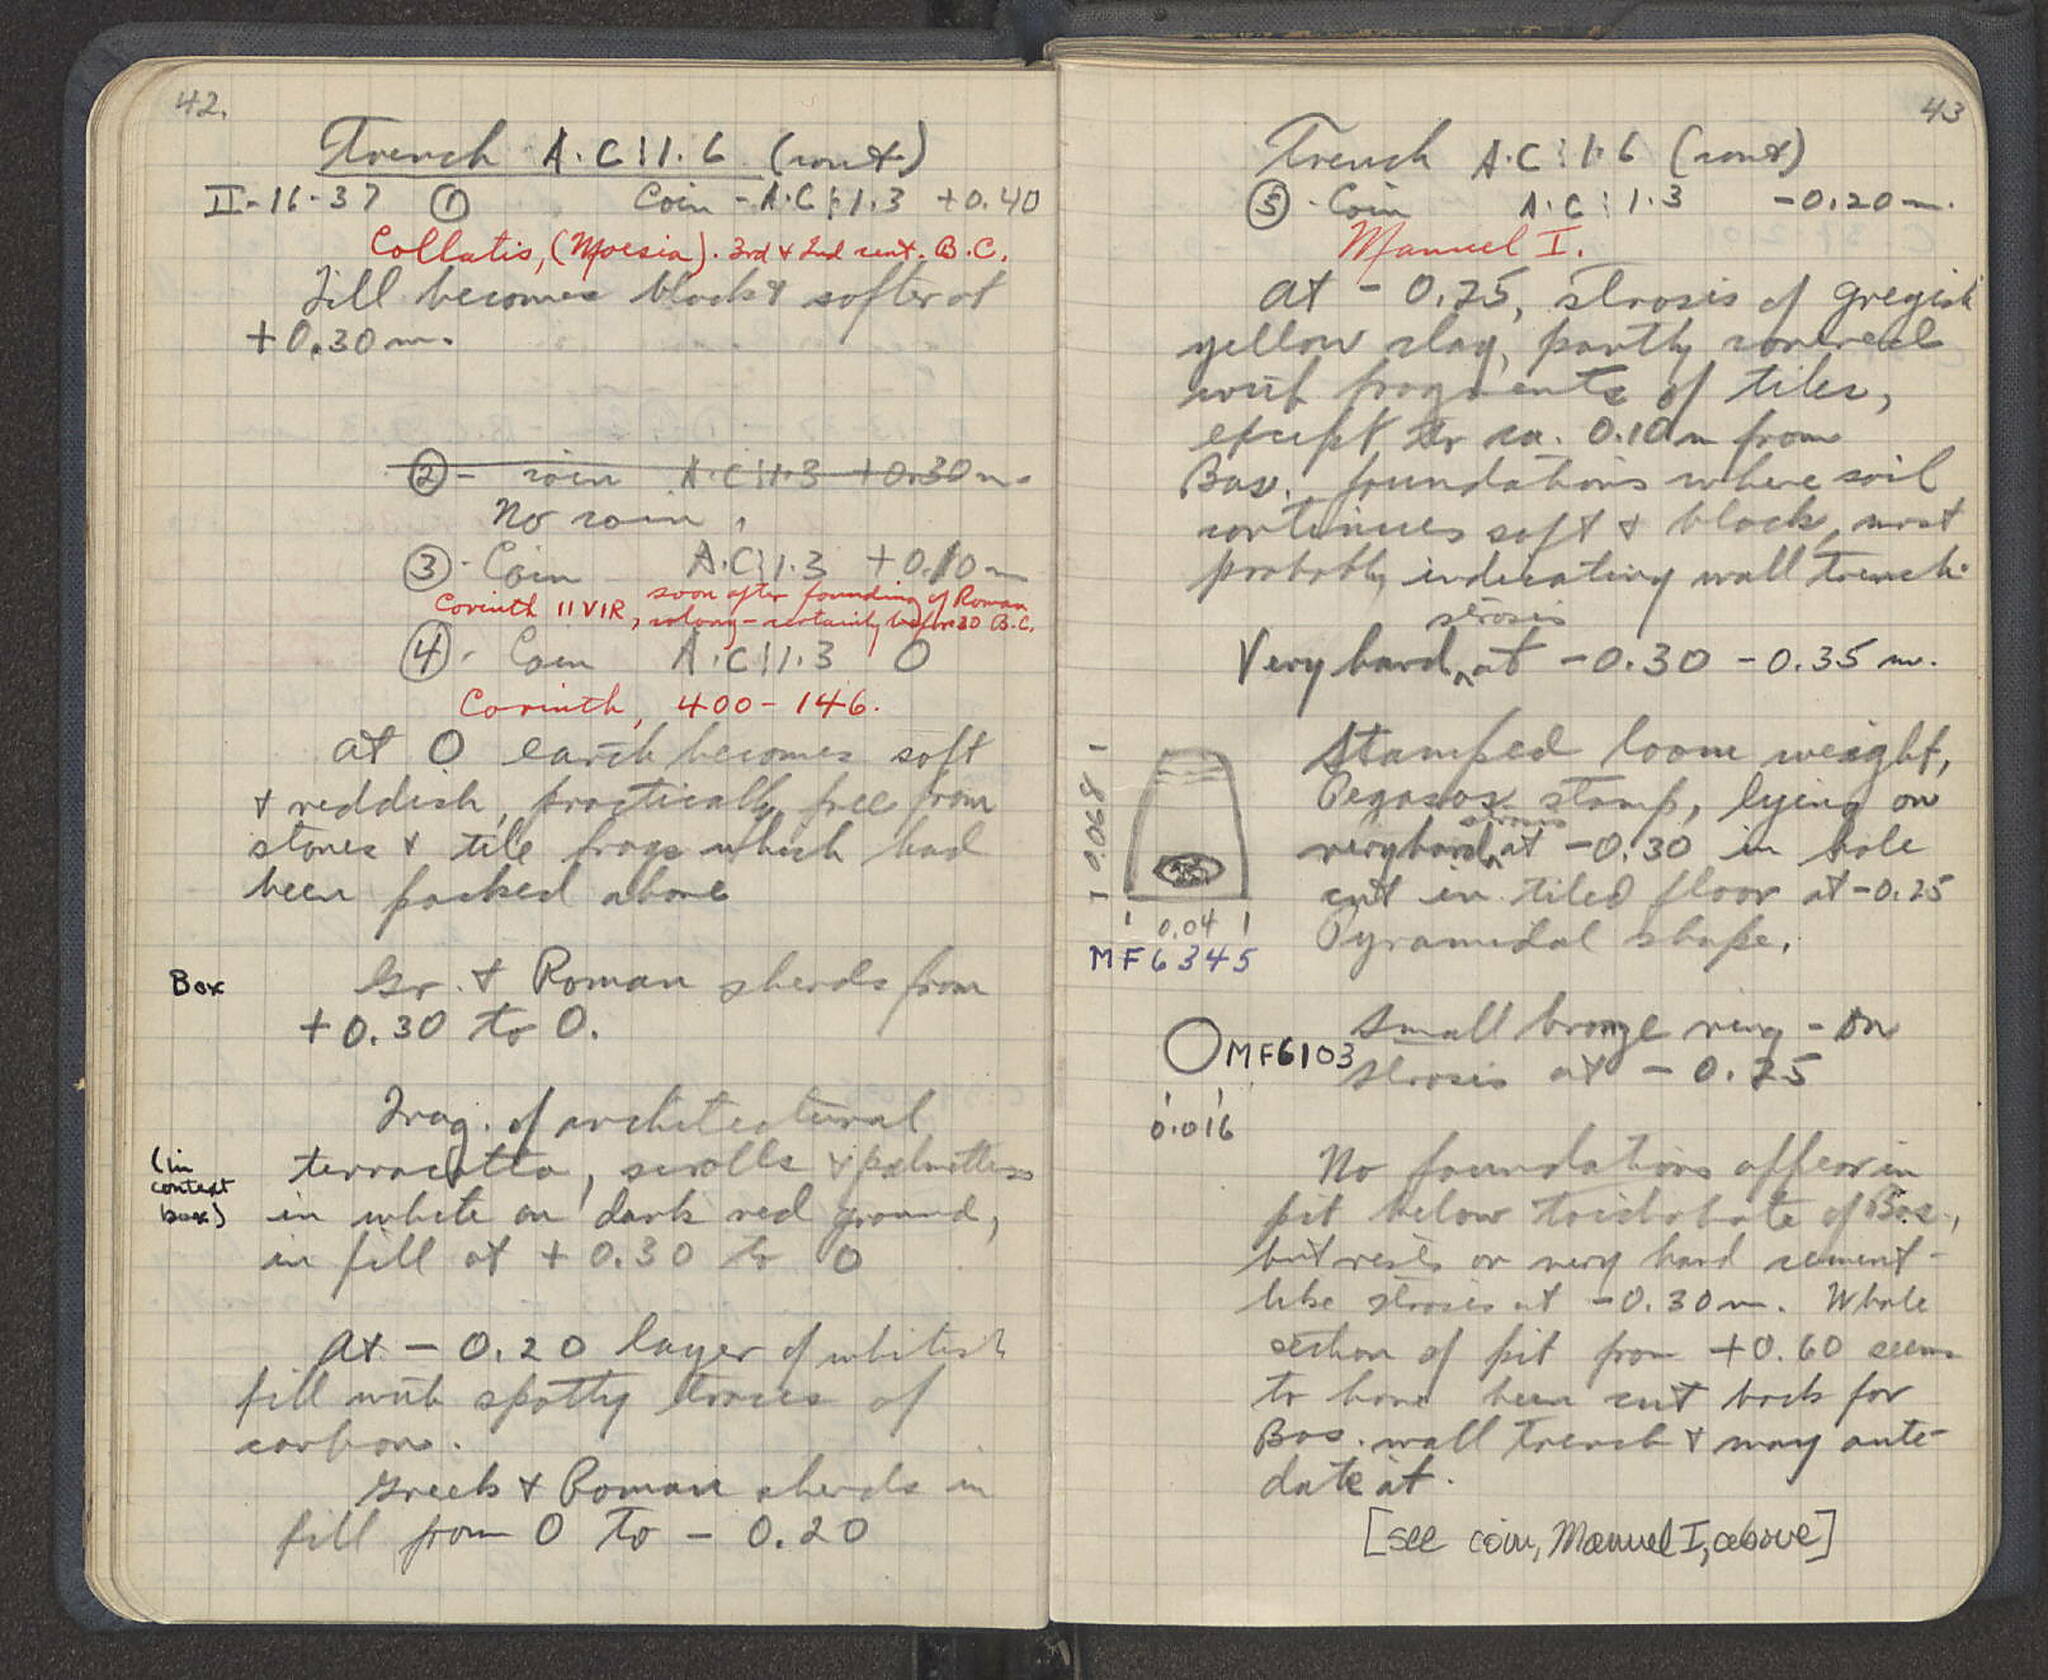 42.
Trench A.C:1.6 (cont)
II-16-37 ① Coin - A.C:1.3 +0.40
Collatis, (Moesia). 3rd & 2nd cent. B.C.
Fill becomes black & softer at
+0.30 m.
② - coin A.C:1.3 +0.30 m.
No coin.
③ - Coin A.C:1.3 +0.10 m
Corinth IIVIR, soon after founding of Roman
colony - certainly before 30 B.C.
④ - Coin A.C:1.3 0
Corinth, 400-146.
At 0 earth becomes soft
& reddish, practically free from
stones & tile frags which had
been packed above
Box
Gr. & Roman sherds from
+0.30 to 0.
Frag. of architectural
(in context box)
terracotta, scrolls & palmettes
in white on dark red ground,
in fill at +0.30 to 0
At -0.20 layer of whitish
fill with spotty traces of
carbon.
Greek & Roman sherds in
fill from 0 to -0.20
43
Trench A.C:1.6 (cont)
⑤ - Coin A.C:1.3 -0.20 m.
Manuel I.
At -0.25, strosis of greyish
yellow clay, partly covered
with fragments of tiles,
except for ca. 0.10 m from
Bas. foundations where soil
continues soft & black, most
probably indicating wall trench.
Very hard strosis at -0.30 -0.35 m.
Stamped loom weight,
Pegasos stamp, lying on
very hard strosis at -0.30 in hole
cut in tiled floor at -0.25
Pyramidal shape.
0.068
0.04
MF6345
Small bronze ring - on
MF6103
strosis at -0.25
0.016
No foundations appear in
pit below toichobate of Bas.,
but rests on very hard cement-
like strosis at -0.30 m. Whole
section of pit from +0.60 seems
to have been cut back for
Bas. wall trench & may ante-
date it.
[see coin, Manuel I, above]